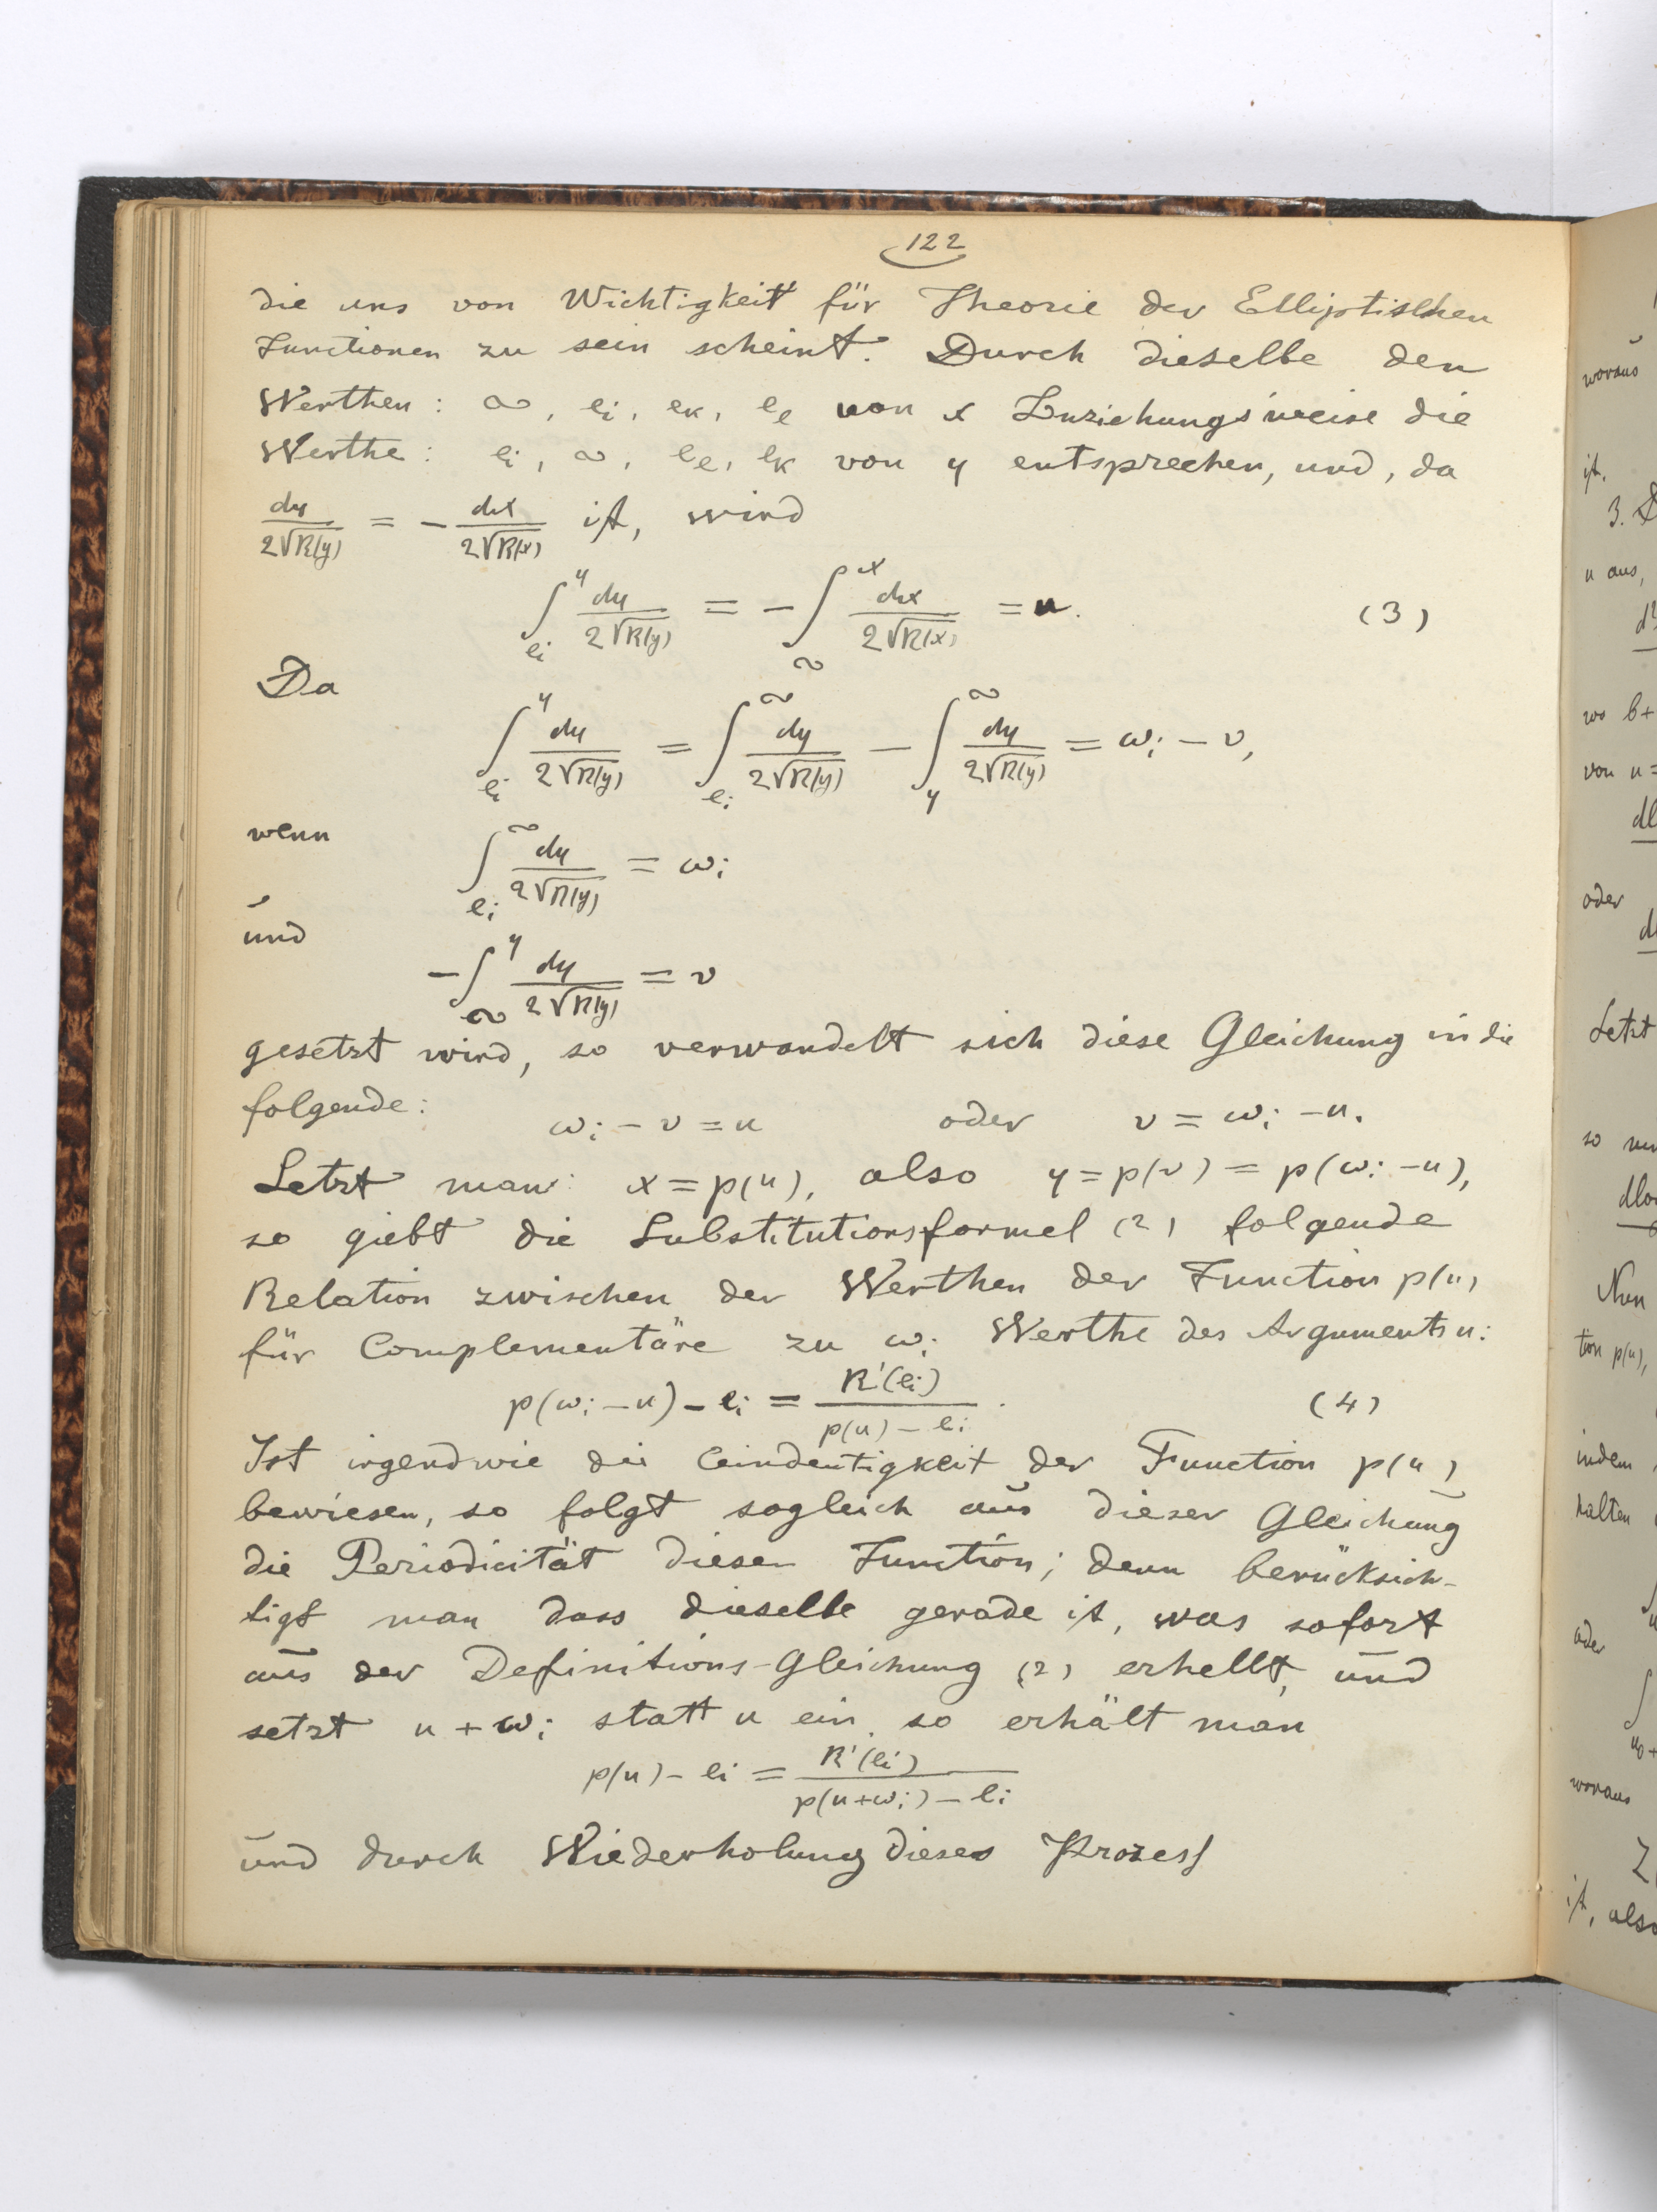 122
die uns von Wichtigkeit für Theorie der Elliptischen
Functionen zu sein scheint. Durch dieselbe den
Werthen: ∞, eᵢ, eₖ, eₑ von x beziehungsweise die
Werthe: eᵢ, ∞, eₑ, eₖ von y entsprechen, und, da
dy/2√R(y) = − dx/2√R(x) ist, wird
∫_{eᵢ}^{y} dy/2√R(y) = − ∫_{∞}^{x} dx/2√R(x) = u. (3)
Da
∫_{eᵢ}^{y} dy/2√R(y) = ∫_{eᵢ}^{∞} dy/2√R(y) − ∫_{y}^{∞} dy/2√R(y) = ωᵢ − v,
wenn
∫_{eᵢ}^{∞} dy/2√R(y) = ωᵢ
und
−∫_{∞}^{y} dy/2√R(y) = v
gesetzt wird, so verwandelt sich diese Gleichung in die
folgende:
ωᵢ − v = u oder v = ωᵢ − u.
Setzt man: x = p(u), also y = p(v) = p(ωᵢ − u),
so giebt die Substitutionsformel (2) folgende
Relation zwischen der Werthen der Function p(u)
für Complementäre zu ωᵢ Werthe des Arguments u:
p(ωᵢ − u) − eᵢ = R'(eᵢ)/(p(u) − eᵢ). (4)
Ist irgendwie die Eindeutigkeit der Function p(u)
bewiesen, so folgt sogleich aus dieser Gleichung
die Periodicität dieser Function; denn berücksich-
tigt man dass dieselbe gerade ist, was sofort
aus der Definitions-Gleichung (2) erhellt, und
setzt u + ωᵢ statt u ein, so erhält man
p(u) − eᵢ = R'(eᵢ)/(p(u+ωᵢ) − eᵢ)
und durch Wiederholung dieses Prozess
woraus
ist.
3.
u aus,
wo b+
von u =
oder
Setzt
so
Nun
tion p(u),
indem
halten
oder
woraus
ist, also